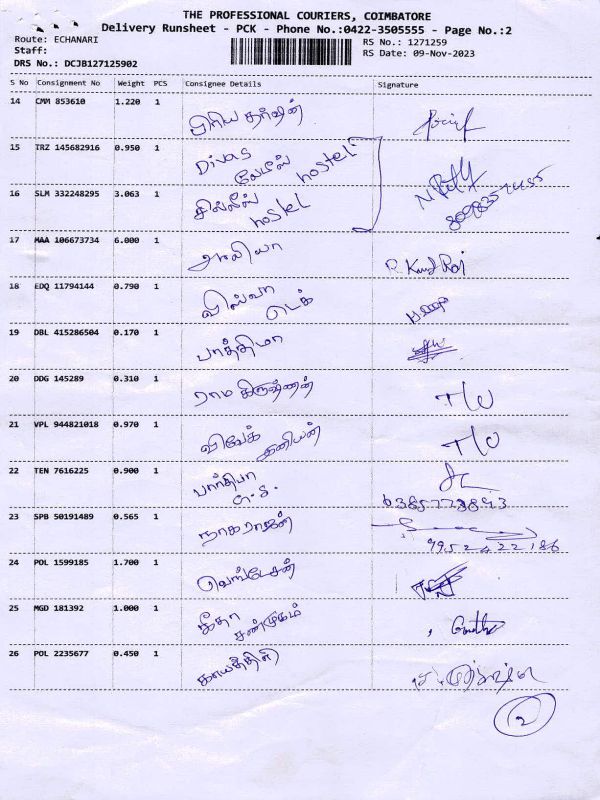 THE PROFESSIONAL COURIERS, COIMBATORE
Delivery Runsheet - PCK - Phone No.:0422-3505555 - Page No.:2
Route: ECHANARI
RS No.: 1271259
Staff:
RS Date: 09-Nov-2023
DRS No.: DCJB127125902
S No Consignment No Weight PCS Consignee Details Signature
14 CMM 853610 1.220 1 பிரிய தர்ஷின்
15 TRZ 145682916 0.950 1 Divas
லேடீஸ் hostel
16 SLM 332248295 3.063 1 hostel
17 MAA 106673734 6.000 1
18 EDQ 11794144 0.790 1 விஸ்வா
டெக்
19 DBL 415286504 0.170 1 பாத்திமா
20 DDG 145289 0.310 1 ராம கிருஷ்ணன் T/U
21 VPL 944821018 0.970 1 விவேக் இனியன் T/U
22 TEN 7616225 0.900 1 பார்திபா
6385723893
23 SPB 50191489 0.565 1 நாகராஜன்
9952422186
24 POL 1599185 1.700 1 வெங்டேசன்
25 MGD 181392 1.000 1 கீதா
சண்முகம்
26 POL 2235677 0.450 1 காயத்திரி
2